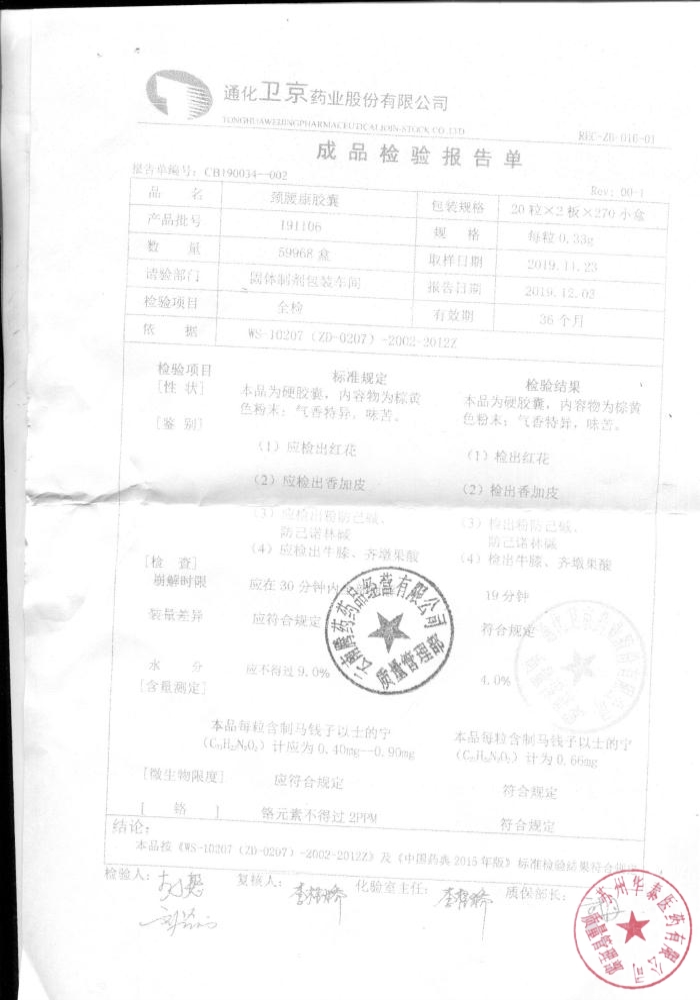 通化卫京药业股份有限公司
TONGHUAWEIJINGPHARMACEUTICALJOIN-STOCK CO.LTD
REC-ZB-016-01
成品检验报告单
报告单编号：CB190034--002
Rev：00-1
品 名 颈腰康胶囊 包装规格 20粒×2板×270小盒
产品批号 191106 规 格 每粒0.33g
数 量 59968盒 取样日期 2019.11.23
请验部门 固体制剂包装车间 报告日期 2019.12.02
检验项目 全检 有效期 36个月
依 据 WS-10207（ZD-0207）-2002-2012Z
检验项目 标准规定 检验结果
[性 状] 本品为硬胶囊，内容物为棕黄 本品为硬胶囊，内容物为棕黄
色粉末；气香特异，味苦。 色粉末；气香特异，味苦。
[鉴 别]
（1）应检出红花 （1）检出红花
（2）应检出香加皮 （2）检出香加皮
（3）应检出粉防己碱、 （3）检出粉防己碱、
防己诺林碱 防己诺林碱
（4）应检出牛膝、齐墩果酸 （4）检出牛膝、齐墩果酸
[检 查]
崩解时限 应在30分钟内 19分钟
装量差异 应符合规定 符合规定
水 分 应不得过9.0% 4.0%
[含量测定]
本品每粒含制马钱子以士的宁 本品每粒含制马钱子以士的宁
（C₂₁H₂₂N₂O₂）计应为0.40mg--0.90mg （C₂₁H₂₂N₂O₂）计为0.66mg
[微生物限度] 应符合规定 符合规定
[ 铬 ] 铬元素不得过2PPM 符合规定
结论：
本品按《WS-10207（ZD-0207）-2002-2012Z》及《中国药典2015年版》标准检验结果符合规定
检验人： 复核人： 化验室主任： 质保部长：
云南腾药药品经营有限公司
质量管理部
苏州华泰医药有限公司
质量管理部